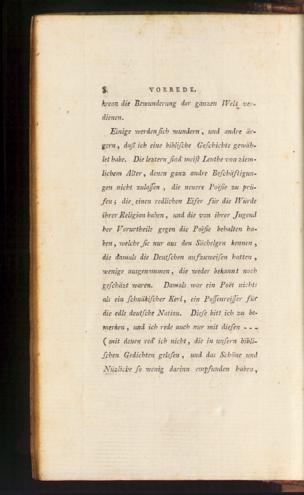 8 VORREDE.
kreon die Bewunderung der ganzen Welt ver-
dienen.
Einige werden ſich wundern, und andre är-
gern, daß ich eine bibliſche Geſchichte gewäh-
let habe. Die leztern ſind meiſt Leuthe von ziem-
lichem Alter, denen ganz andre Beſchäftigun-
gen nicht zulaſſen, die neuere Poëſie zu prü-
fen; die einen redlichen Eifer für die Würde
ihrer Religion haben, und die von ihrer Jugend
her Vorurtheile gegen die Poëſie behalten ha-
ben, welche ſie nur aus den Sächelgen kennen,
die damals die Deutſchen aufzuweiſen hatten,
wenige ausgenommen, die weder bekannt noch
geſchäzt waren. Damals war ein Poët nichts
als ein ſchnäkiſcher Kerl, ein Poſſenreiſſer für
die edle deutſche Nation. Dieſe bitt ich zu be-
merken, und ich rede auch nur mit dieſen - - -
( mit denen red' ich nicht, die in unſern bibli-
ſchen Gedichten geleſen, und das Schöne und
Nüzliche ſo wenig darinn empfunden haben,